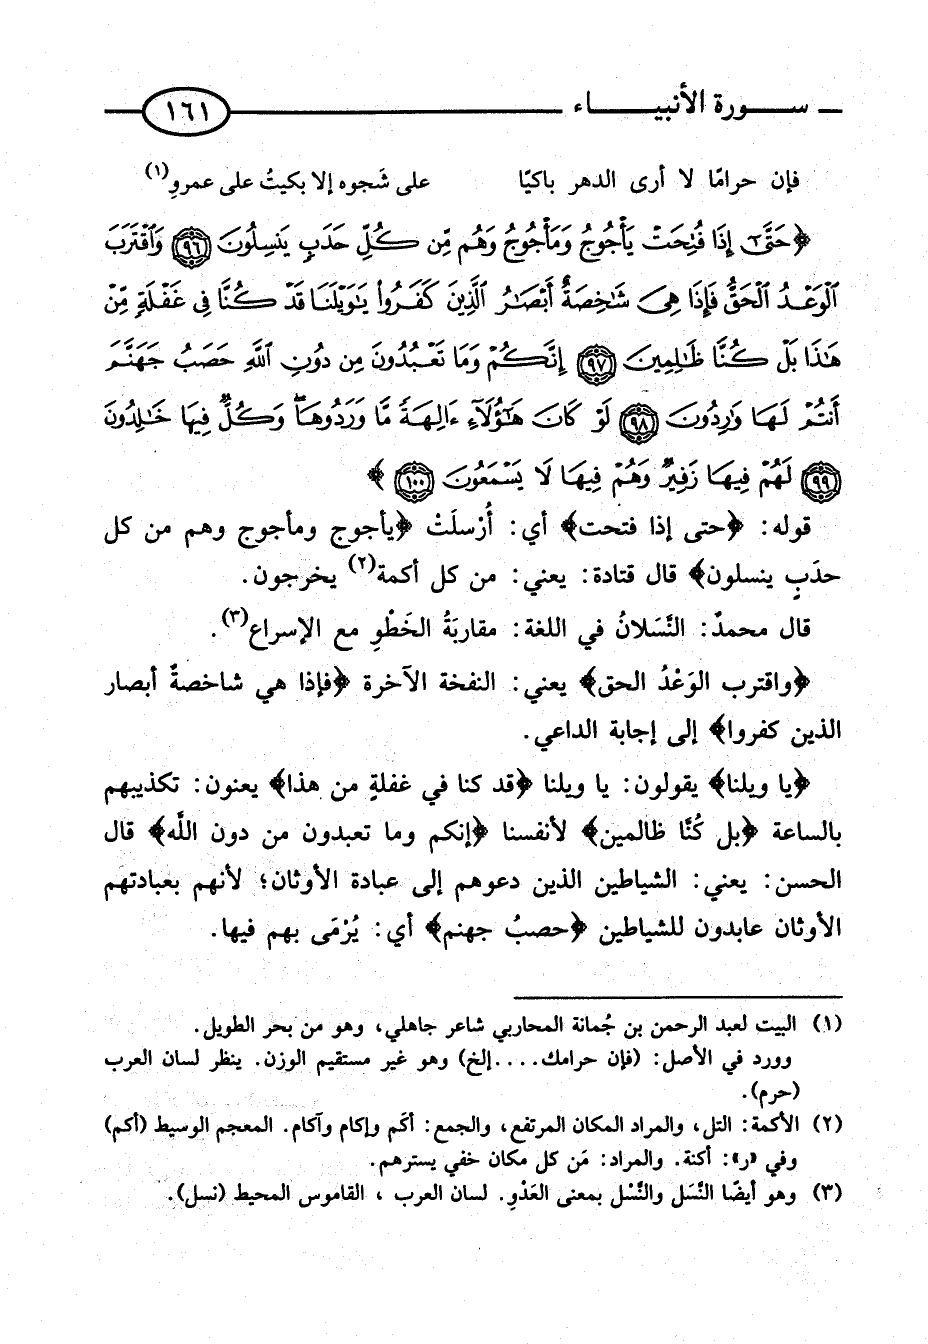 سورة الأنبياء ١٦١
فإن حرامًا لا أرى الدهر باكيًا على شَجوه إلا بكيتُ على عمرٍو(١)
﴿حَتَّىٰٓ إِذَا فُتِحَتْ يَأْجُوجُ وَمَأْجُوجُ وَهُم مِّن كُلِّ حَدَبٍ يَنسِلُونَ ٩٦ وَٱقْتَرَبَ
ٱلْوَعْدُ ٱلْحَقُّ فَإِذَا هِىَ شَـٰخِصَةٌ أَبْصَـٰرُ ٱلَّذِينَ كَفَرُوا۟ يَـٰوَيْلَنَا قَدْ كُنَّا فِى غَفْلَةٍ مِّنْ
هَـٰذَا بَلْ كُنَّا ظَـٰلِمِينَ ٩٧ إِنَّكُمْ وَمَا تَعْبُدُونَ مِن دُونِ ٱللَّهِ حَصَبُ جَهَنَّمَ
أَنتُمْ لَهَا وَٰرِدُونَ ٩٨ لَوْ كَانَ هَـٰٓؤُلَآءِ ءَالِهَةً مَّا وَرَدُوهَا ۖ وَكُلٌّ فِيهَا خَـٰلِدُونَ
٩٩ لَهُمْ فِيهَا زَفِيرٌ وَهُمْ فِيهَا لَا يَسْمَعُونَ ١٠٠﴾
قوله: ﴿حتى إذا فتحت﴾ أي: أُرْسلَتْ ﴿يأجوج ومأجوج وهم من كل
حدَبٍ ينسلون﴾ قال قتادة: يعني: من كل أكمة(٢) يخرجون.
قال محمدٌ: النَّسَلانُ في اللغة: مقاربَةُ الخَطْوِ مع الإسراع(٣).
﴿واقترب الوَعْدُ الحق﴾ يعني: النفخة الآخرة ﴿فإذا هي شاخصةٌ أبصار
الذين كفروا﴾ إلى إجابة الداعي.
﴿يا ويلنا﴾ يقولون: يا ويلنا ﴿قد كنا في غفلةٍ من هذا﴾ يعنون: تكذيبهم
بالساعة ﴿بل كُنَّا ظالمين﴾ لأنفسنا ﴿إنكم وما تعبدون من دون اللَّه﴾ قال
الحسن: يعني: الشياطين الذين دعوهم إلى عبادة الأوثان؛ لأنهم بعبادتهم
الأوثان عابدون للشياطين ﴿حصبُ جهنم﴾ أي: يُرْمَى بهم فيها.
(١) البيت لعبد الرحمن بن جُمانة المحاربي شاعر جاهلي، وهو من بحر الطويل.
وورد في الأصل: (فإن حرامك....إلخ) وهو غير مستقيم الوزن. ينظر لسان العرب
(حرم).
(٢) الأكمة: التل، والمراد المكان المرتفع، والجمع: أكَم وإكام وآكام. المعجم الوسيط (أكم)
وفي «ر»: أكنة. والمراد: مَن كل مكان خفي يسترهم.
(٣) وهو أيضًا النَّسَل والنَّسْل بمعنى العَدْوِ. لسان العرب ، القاموس المحيط (نسل).